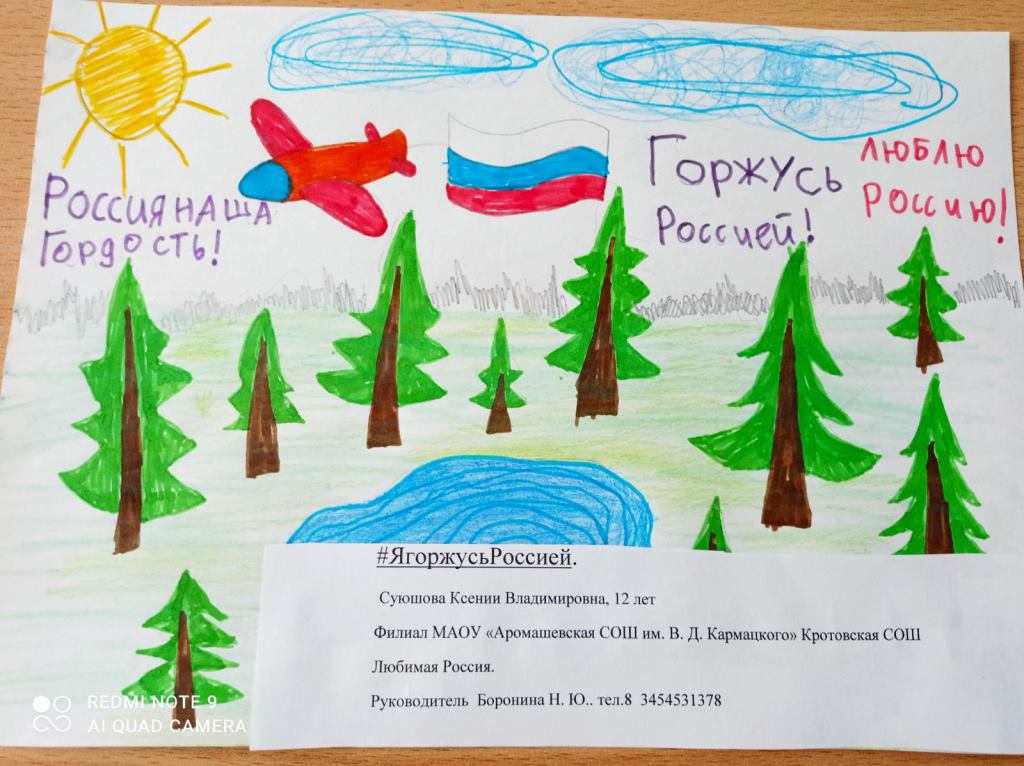 Россия наша
Гордость!
Горжусь
Россией!
Люблю
Россию!
#ЯгоржусьРоссией.
Суюшова Ксении Владимировна, 12 лет
Филиал МАОУ «Аромашевская СОШ им. В. Д. Кармацкого» Кротовская СОШ
Любимая Россия.
Руководитель Боронина Н. Ю.. тел.8 3454531378
REDMI NOTE 9
AI QUAD CAMERA